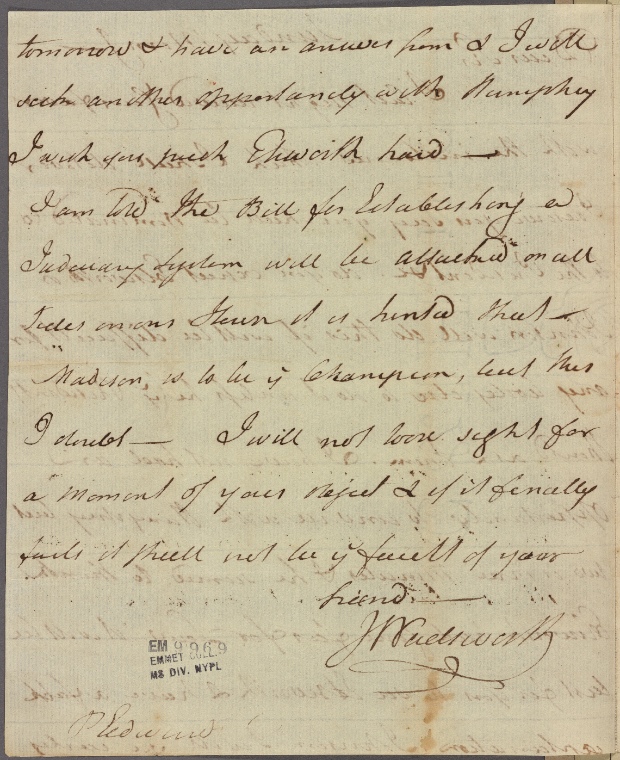 tomorrow & have an answer from & I will
seek another opportunely with Humphry
I wish you push Elsworth hard —
I am told the Bill for Establishing a
Judiciary System will be attacked on all
sides it is hinted that —
Madison is to be y Champion, but this
I doubt — I will not loose sight for
a moment of your object & if it finally
fails it shall not be y fault of your
friend. —
J Wadsworth
EM 9069
EMMET COLL.
MS DIV. NYPL
P Edward